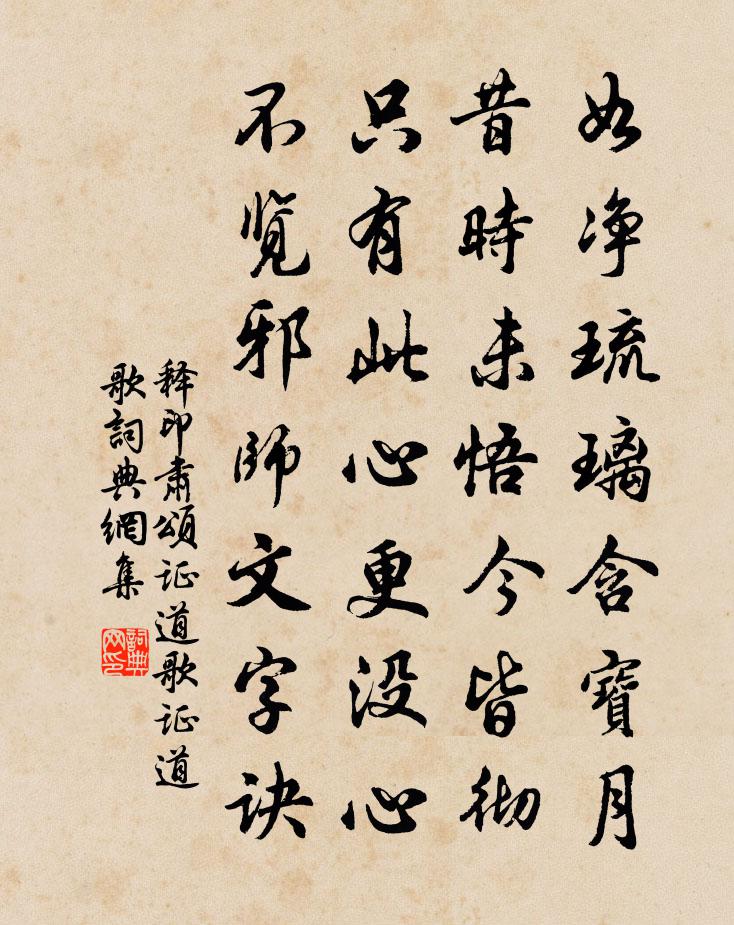 如净琉璃含寶月
昔時未悟今皆彻
只有此心更没心
不览邪師文字诀
释印肃頌证道歌证道
歌詞典網集
詞典
网印